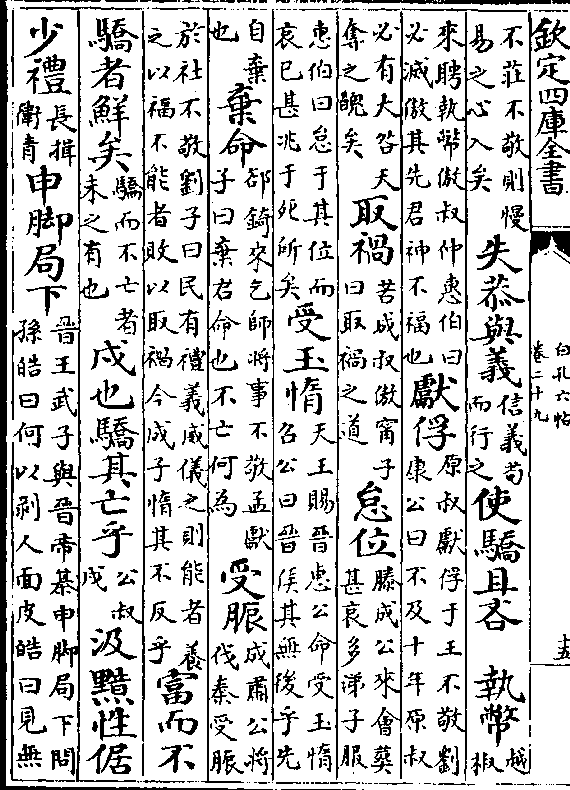 欽定四庫全書
白孔六帖
卷二十九
十五
不莊不敬則慢易之心入矣失恭與義信義茍而行之使驕且吝 執幣越椒
來聘執幣傲叔仲惠伯曰必滅傲其先君神不福也獻俘原叔獻俘于王不敬劉康公曰不及十年原叔
必有大咎天奪之魄矣取禍苦成叔傲甯子曰取禍之道怠位滕成公來會葬甚哀多涕子服
惠伯曰怠于其位而哀已甚兆于死所矣受玉惰天王賜晉惠公命受玉惰召公曰晉侯其無後乎先
自棄也棄命郤錡來乞師將事不敬孟獻子曰棄君命也不亡何為受脤成肅公將伐秦受脤
於社不敬劉子曰民有禮義威儀之則能者養之以福不能者敗以取禍今成子惰其不反乎富而不
驕者鮮矣驕而不亡者未之有也戍也驕其亡乎公叔戍汲黯性倨
少禮長揖衛青申脚局下晉王武子與晉帝棊申脚局下問孫皓曰何以剥人面皮皓曰見無